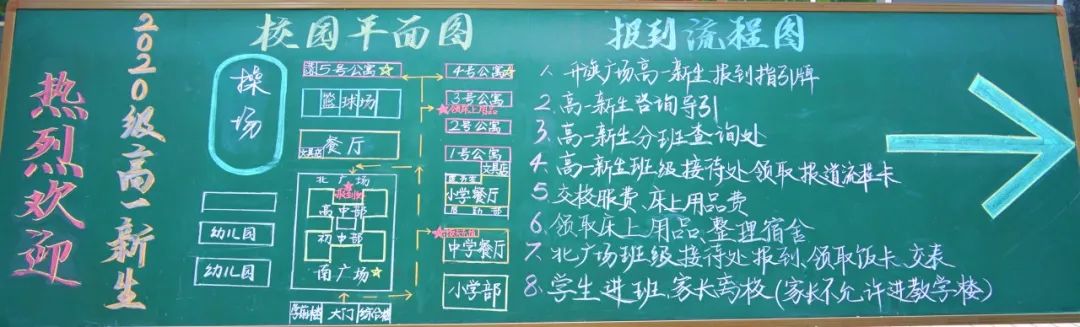 热烈欢迎
2020级高一新生
校园平面图
操场
5号公寓
4号公寓
篮球场
3号公寓
领床上用品
2号公寓
餐厅
文具店
1号公寓
文具店
北广场
报到处
小学餐厅
后勤部
高中部
初中部
中学餐厅
幼儿园
幼儿园
南广场
小学部
学前楼
大门
综合楼
报到流程图
1. 升旗广场高一新生报到指引牌
2. 高一新生咨询导引
3. 高一新生分班查询处
4. 高一新生班级接待处领取报道流程卡
5. 交校服费、床上用品费
6. 领取床上用品、整理宿舍
7. 北广场班级接待处报到、领取饭卡、交表
8. 学生进班、家长离校(家长不允许进教学楼)